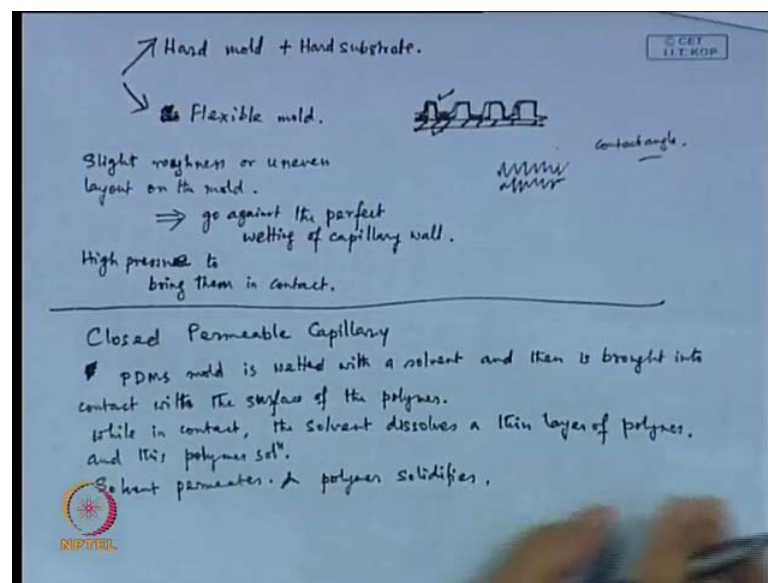 Hard mold + Hard substrate.
© CET
I.I.T. KGP
Flexible mold.
contact angle.
Slight roughness or uneven
layout on the mold.
⇒ go against the perfect
wetting of capillary wall.
High pressure to
bring them in contact.
Closed Permeable Capillary
PDMS mold is wetted with a solvent and then is brought into
contact with the surface of the polymer.
while in contact, the solvent dissolves a thin layer of polymer.
and this polymer solⁿ.
Solvent permeates. & polymer solidifies.
NPTEL